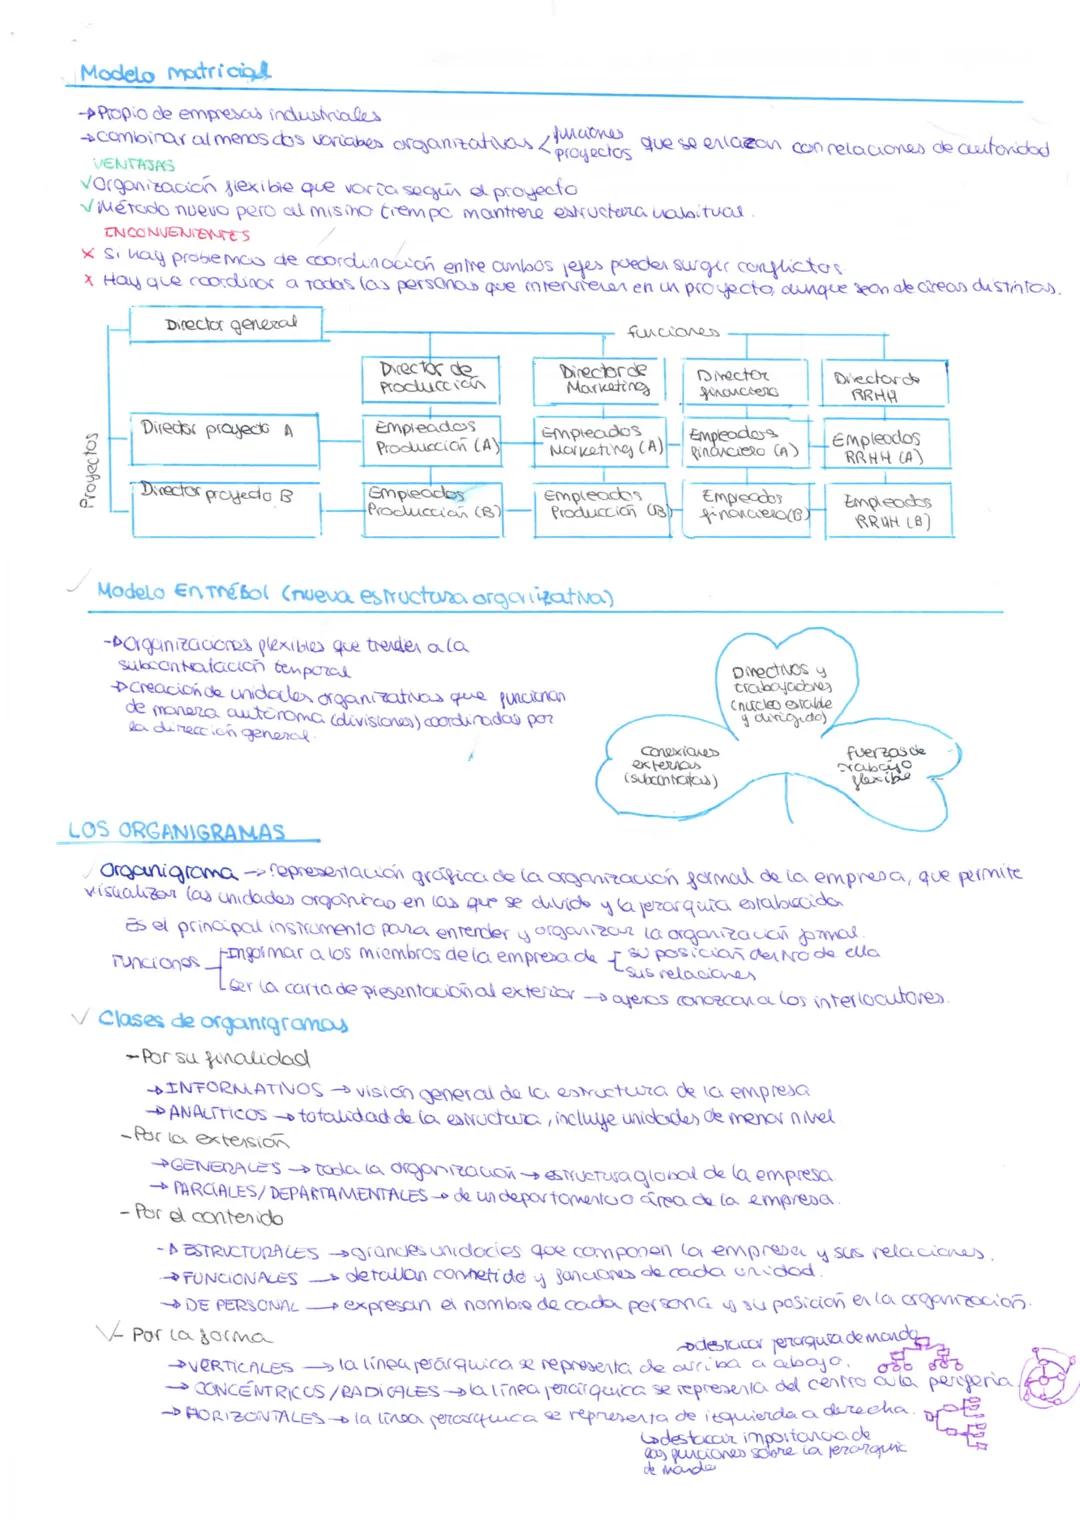 Modelo matricial
→Propio de empresas industriales
→combinar al menos dos variables organizativas < funciones proyectos que se enlazan con relaciones de autoridad
VENTAJAS
√Organización flexible que varía según el proyecto
√Método nuevo pero al mismo tiempo mantiene estructura habitual.
INCONVENIENTES
X Si hay problemas de coordinación entre ambos jefes pueden surgir conflictos.
X Hay que coordinar a todas las personas que intervienen en un proyecto, aunque sean de áreas distintas.
Director general
funciones
Director de Producción
Director de Marketing
Director financiero
Director de RRHH
Proyectos
Director proyecto A
Empleados Producción (A)
Empleados Marketing (A)
Empleados financiero (A)
Empleados RRHH (A)
Director proyecto B
Empleados Producción (B)
Empleados Producción (B)
Empleados financiero (B)
Empleados RRHH (B)
Modelo En Trébol (nueva estructura organizativa)
→Organizaciones flexibles que tienden a la
subcontratación temporal
→creación de unidades organizativas que funcionan
de manera autónoma (divisiones) coordinadas por
la dirección general.
Directivos y
trabajadores
(núcleo estable
y dirigido)
Conexiones
externas
(subcontratas)
fuerzas de
trabajo
flexible
LOS ORGANIGRAMAS
Organigrama → representación gráfica de la organización formal de la empresa, que permite
visualizar las unidades orgánicas en las que se divide y la jerarquía establecida
Es el principal instrumento para entender y organizar la organización formal.
Funciones
Informar a los miembros de la empresa de
su posición dentro de ella
sus relaciones
Ser la carta de presentación al exterior → ajenos conozcan a los interlocutores.
√ Clases de organigramas
-Por su finalidad
→INFORMATIVOS → visión general de la estructura de la empresa
→ANALÍTICOS → totalidad de la estructura, incluye unidades de menor nivel
-Por la extensión
→GENERALES → toda la organización → estructura global de la empresa.
→PARCIALES/DEPARTAMENTALES → de un departamento o área de la empresa.
-Por el contenido
-→ESTRUCTURALES → grandes unidades que componen la empresa y sus relaciones.
→FUNCIONALES → detallan cometido y funciones de cada unidad.
→DE PERSONAL → expresan el nombre de cada persona y su posición en la organización.
√- Por la forma
→destacar jerarquía de mando
→VERTICALES → la línea jerárquica se representa de arriba a abajo.
→CONCÉNTRICOS/RADICALES → la línea jerárquica se representa del centro a la periferia
→HORIZONTALES → la línea jerárquica se representa de izquierda a derecha.
↳destacar importancia de
las funciones sobre la jerarquía
de mando